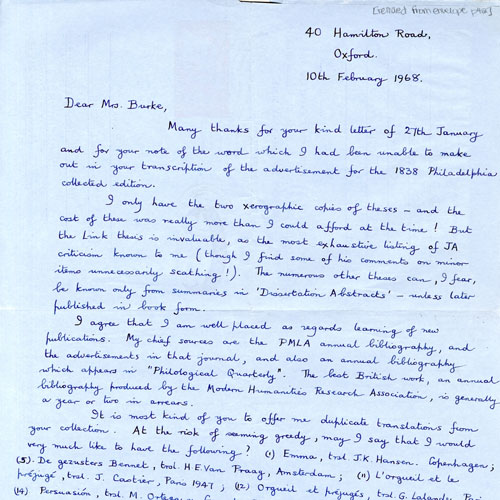 [removed from envelope
40 Hamilton Road,
Oxford.
10th February 1968.
Dear Mrs. Burke,
Many thanks for your kind letter of 27th January
and for your note of the word which I had been unable to make
out in your transcription of the advertisement for the 1838 Philadelphia
collected edition.
I only have the two xerographic copies of theses – and the
cost of these was really more than I could afford at the time! But
the Link thesis is invaluable, as the most exhaustive listing of JA
criticism known to me (though I find some of his comments on minor
items unnecessarily scathing!). The numerous other theses can, I fear,
be known only from summaries in 'Dissertation Abstracts' – unless later
published in book form.
I agree that I am well placed as regards learning of new
publications. My chief sources are the PMLA annual bibliography, and
the advertisements in that journal, and also an annual bibliography
which appears in "Philological Quarterly". The best British work, an annual
bibliography produced by the Modern Humanities Research Association, is generally
a year or two in arrears.
It is most kind of you to offer me duplicate translations from
your collection. At the risk of seeming greedy, may I say that I would
very much like to have the following? (1) Emma, trsl. J.K. Hansen. Copenhagen;
(5). De gezusters Bennet, trsl. H.E. Van Praag, Amsterdam; (11) L'orgueil et le
préjugé, trsl. J. Castier, Paris 1947; (12) Orgueil et préjugés, trsl. G. Lalande,
(14) Persuasión, trsl. M.